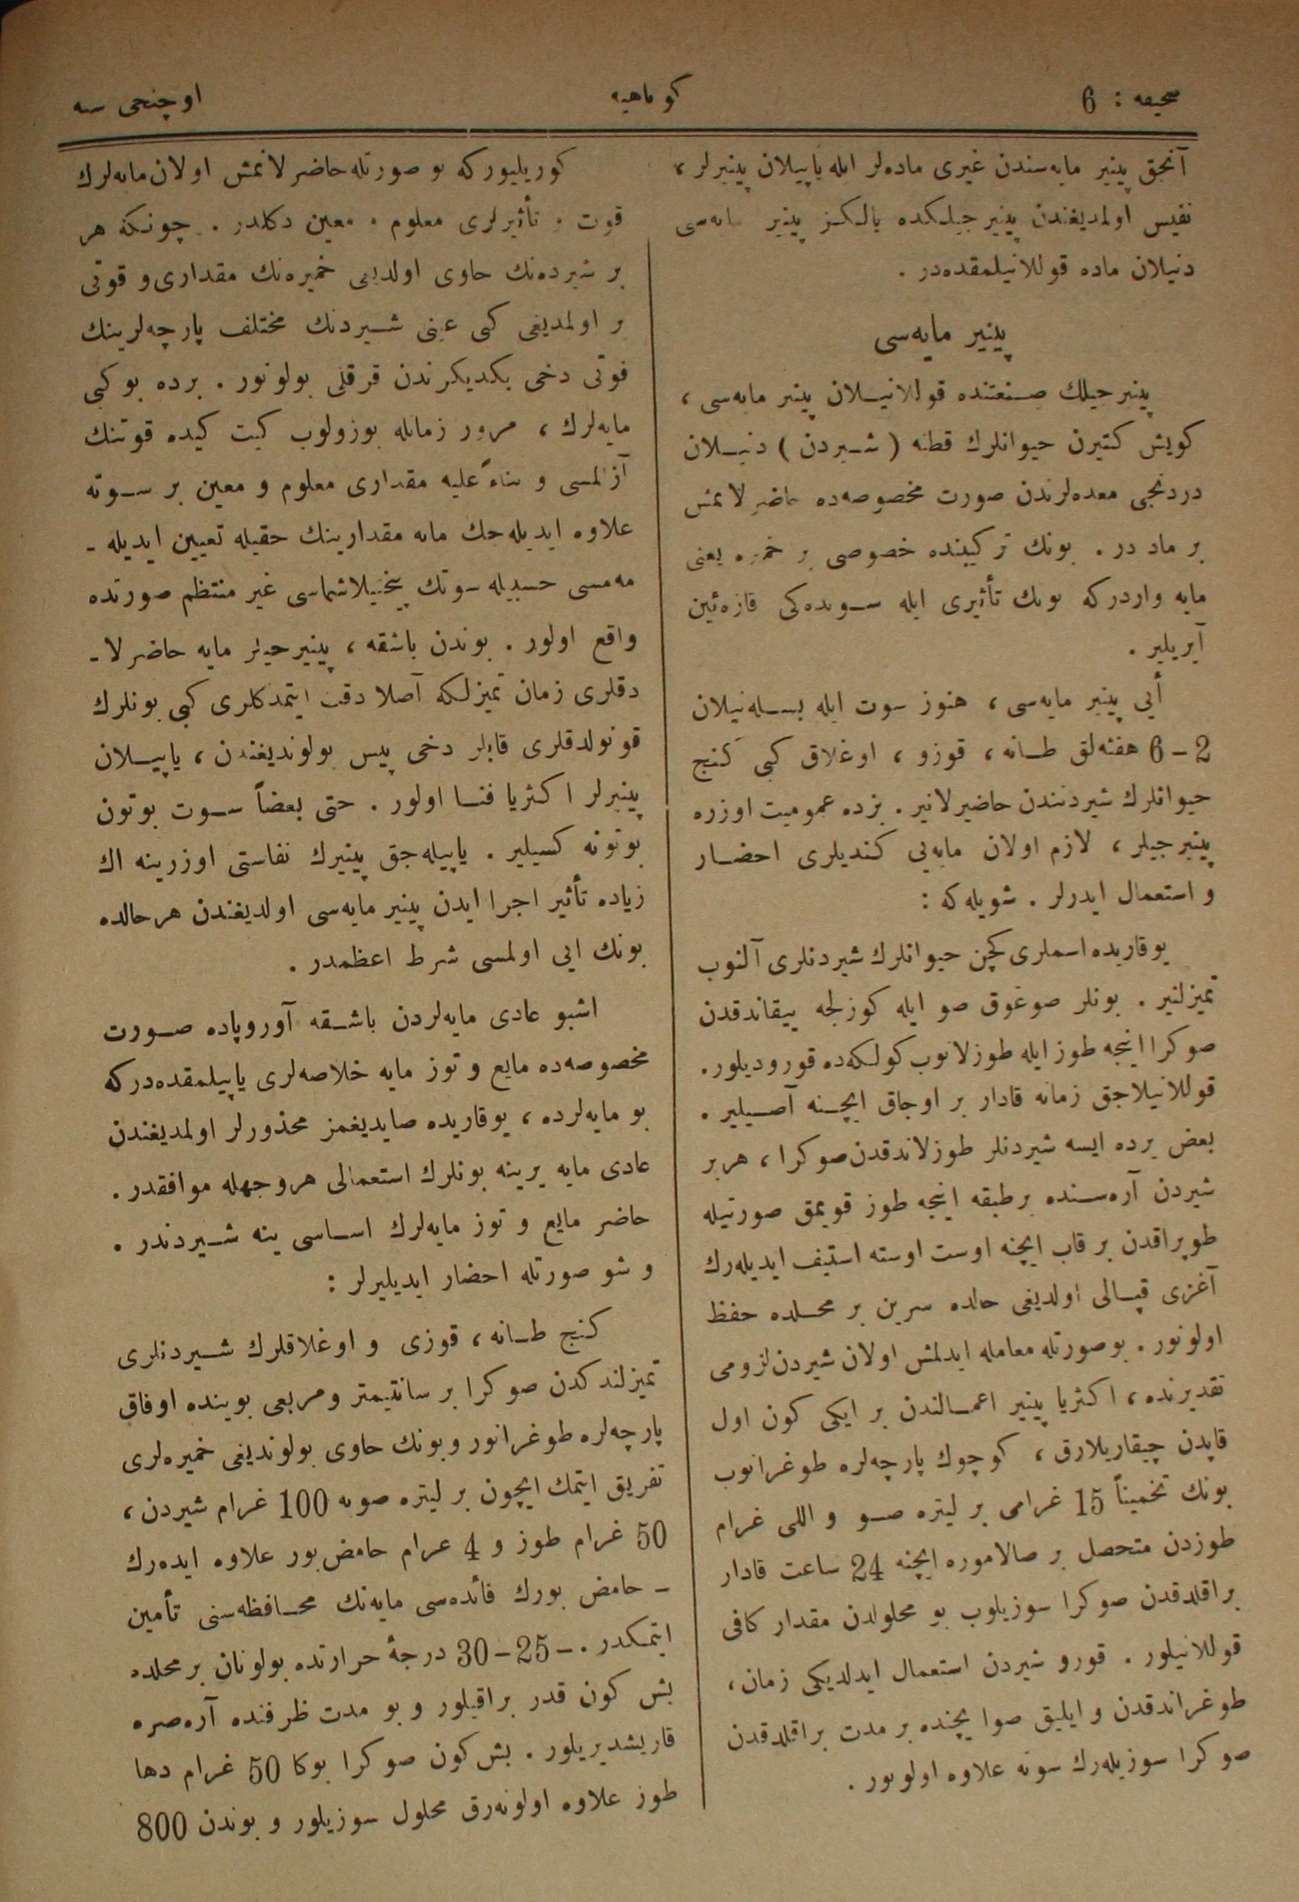 صحیفه : 6
اوچنجی سنه
آنجق پینیر مایه‌سندن غیری ماده‌لر ایله یاپیلان پینیرلر ،
نفیس اولمدیغندن پینیر جیلکده یالکز پینیر مایه‌سی
دنیلان ماده قوللانیلمقده‌در .
پینیر مایه‌سی
پینیرجیلك صنعتنده قوللانیلان پینیر مایه‌سی ،
كویش كتیرن حیوانلرك قطنه ( شیردن ) دنیلان
دردنجی معده‌لرندن صورت مخصوصه‌ده حاضرلانمش
بر ماده در . بونك تركیبنده خصوصی بر خمیره یعنی
مایه واردركه بونك تأثیری ایله سوتده‌كی قازه‌ئین
آیریلیر .
أیی پینیر مایه‌سی ، هنوز سوت ایله بسله‌نیلان
2 – 6 هفته‌لق طانه ، قوزو ، اوغلاق كبی كنج
حیوانلرك شیردنندن حاضیرلانیر . بزده عمومیت اوزره
پینیرجیلر ، لازم اولان مایه‌یی كندیلری احضار
و استعمال ایدرلر . شویله‌كه :
یوقاریده اسملری كچن حیوانلرك شیردنلری آلنوب
تمیزلنیر . بونلر صوغوق صو ایله كوزلجه ییقاندقدن
صوكرا اینجه طوز ایله طوزلانوب كولكه‌ده قورودیلور.
قوللانیلاجق زمانه قادار بر اوجاق ایچنه آصیلیر .
بعض یرده ایسه شیردنلر طوزلاندقدن صوكرا ، هربر
شیردن آره‌سنده برطبقه اینجه طوز قویمق صورتیله
طوپراقدن بر قاب ایچنه اوست اوسته استیف ایدیله‌رك
آغزی قپالی اولدیغی حالده سرین بر محلده حفظ
اولونور . بوصورتله معامله ایدلمش اولان شیردن لزومی
تقدیرنده ، اكثریا پینیر اعمالندن بر ایكی كون اول
قاپدن چیقاریلارق ، كوچوك پارچه‌لره طوغرانوب
بونك تخمیناً 15 غرامی بر لیتره صو و اللی غرام
طوزدن متحصل بر صالاموره ایچنه 24 ساعت قادار
براقلدقدن صوكرا سوزیلوب بو محلولدن مقدار كافی
قوللانیلور . قورو شیردن استعمال ایدلدیكی زمان ،
طوغراندقدن و ایلیق صوا یچنده بر مدت براقلدقدن
صوكرا سوزیله‌رك سوته علاوه اولونور .
كوریلیوركه بو صورتله حاضرلانمش اولان مایه‌لرك
قوت و تأثیرلری معلوم و معین دكلدر . چونكه هر
بر شیرده‌نك حاوی اولدیغی خمیره‌نك مقداری و قوتی
بر اولمدیغی كبی عینی شیردنك مختلف پارچه‌لرینك
قوتی دخی یكدیكرندن فرقلی بولونور . برده بوكبی
مایه‌لرك ، مرور زمانله بوزولوب كیت كیده قوتنك
آزلمسی و بناءً علیه مقداری معلوم و معین بر سوته
علاوه ایدیله‌جك مایه مقدارینك حقیله تعیین ایدیله -
مه‌مسی حسبیله سوتك پیخنیلاشماسی غیر منتظم صورتده
واقع اولور . بوندن باشقه ، پینیرجیلر مایه حاضرلا -
دقلری زمان تمیزلكه آصلا دقت ایتمدكلری كبی بونلرك
قونولدقلری قابلر دخی پیس بولوندیغندن ، یاپیلان
پینیرلر اكثریا فنا اولور . حتی بعضاً سوت بوتون
بوتونه كسیلیر . یاپیله‌جق پینیرك نفاستی اوزرینه اك
زیاده تأثیر اجرا ایدن پینیر مایه‌سی اولدیغندن هرحالده
بونك ایی اولمسی شرط اعظمدر .
اشبو عادی مایه‌لردن باشقه آوروپاده صورت
مخصوصه‌ده مایع و توز مایه خلاصه‌لری یاپیلمقده‌دركه
بو مایه‌لرده ، یوقاریده صایدیغمز محذورلر اولمدیغندن
عادی مایه یرینه بونلرك استعمالی هروجهله موافقدر .
حاضر مایع و توز مایه‌لرك اساسی ینه شیردندر .
و شو صورتله احضار ایدیلیرلر :
كنج طانه ، قوزی و اوغلاقلرك شیردنلری
تمیزلندكدن صوكرا بر سانتیمتر ومربعی بوینده اوفاق
پارچه‌لره طوغرانور وبونك حاوی بولوندیغی خمیره‌لری
تفریق ایتمك ایچون بر لیتره صویه 100 غرام شیردن ،
50 غرام طوز و 4 غرام حامض بور علاوه ایده‌رك
- حامض بورك فائده‌سی مایه‌نك محافظه‌سنی تأمین
ایتمكدر .– 25–30 درجهٔ حرارتده بولونان بر محلده
بش كون قدر براقیلور و بو مدت ظرفنده آره‌صره
قاریشدیریلور . بش كون صوكرا بوكا 50 غرام دها
طوز علاوه اولونه‌رق محلول سوزیلور و بوندن 800